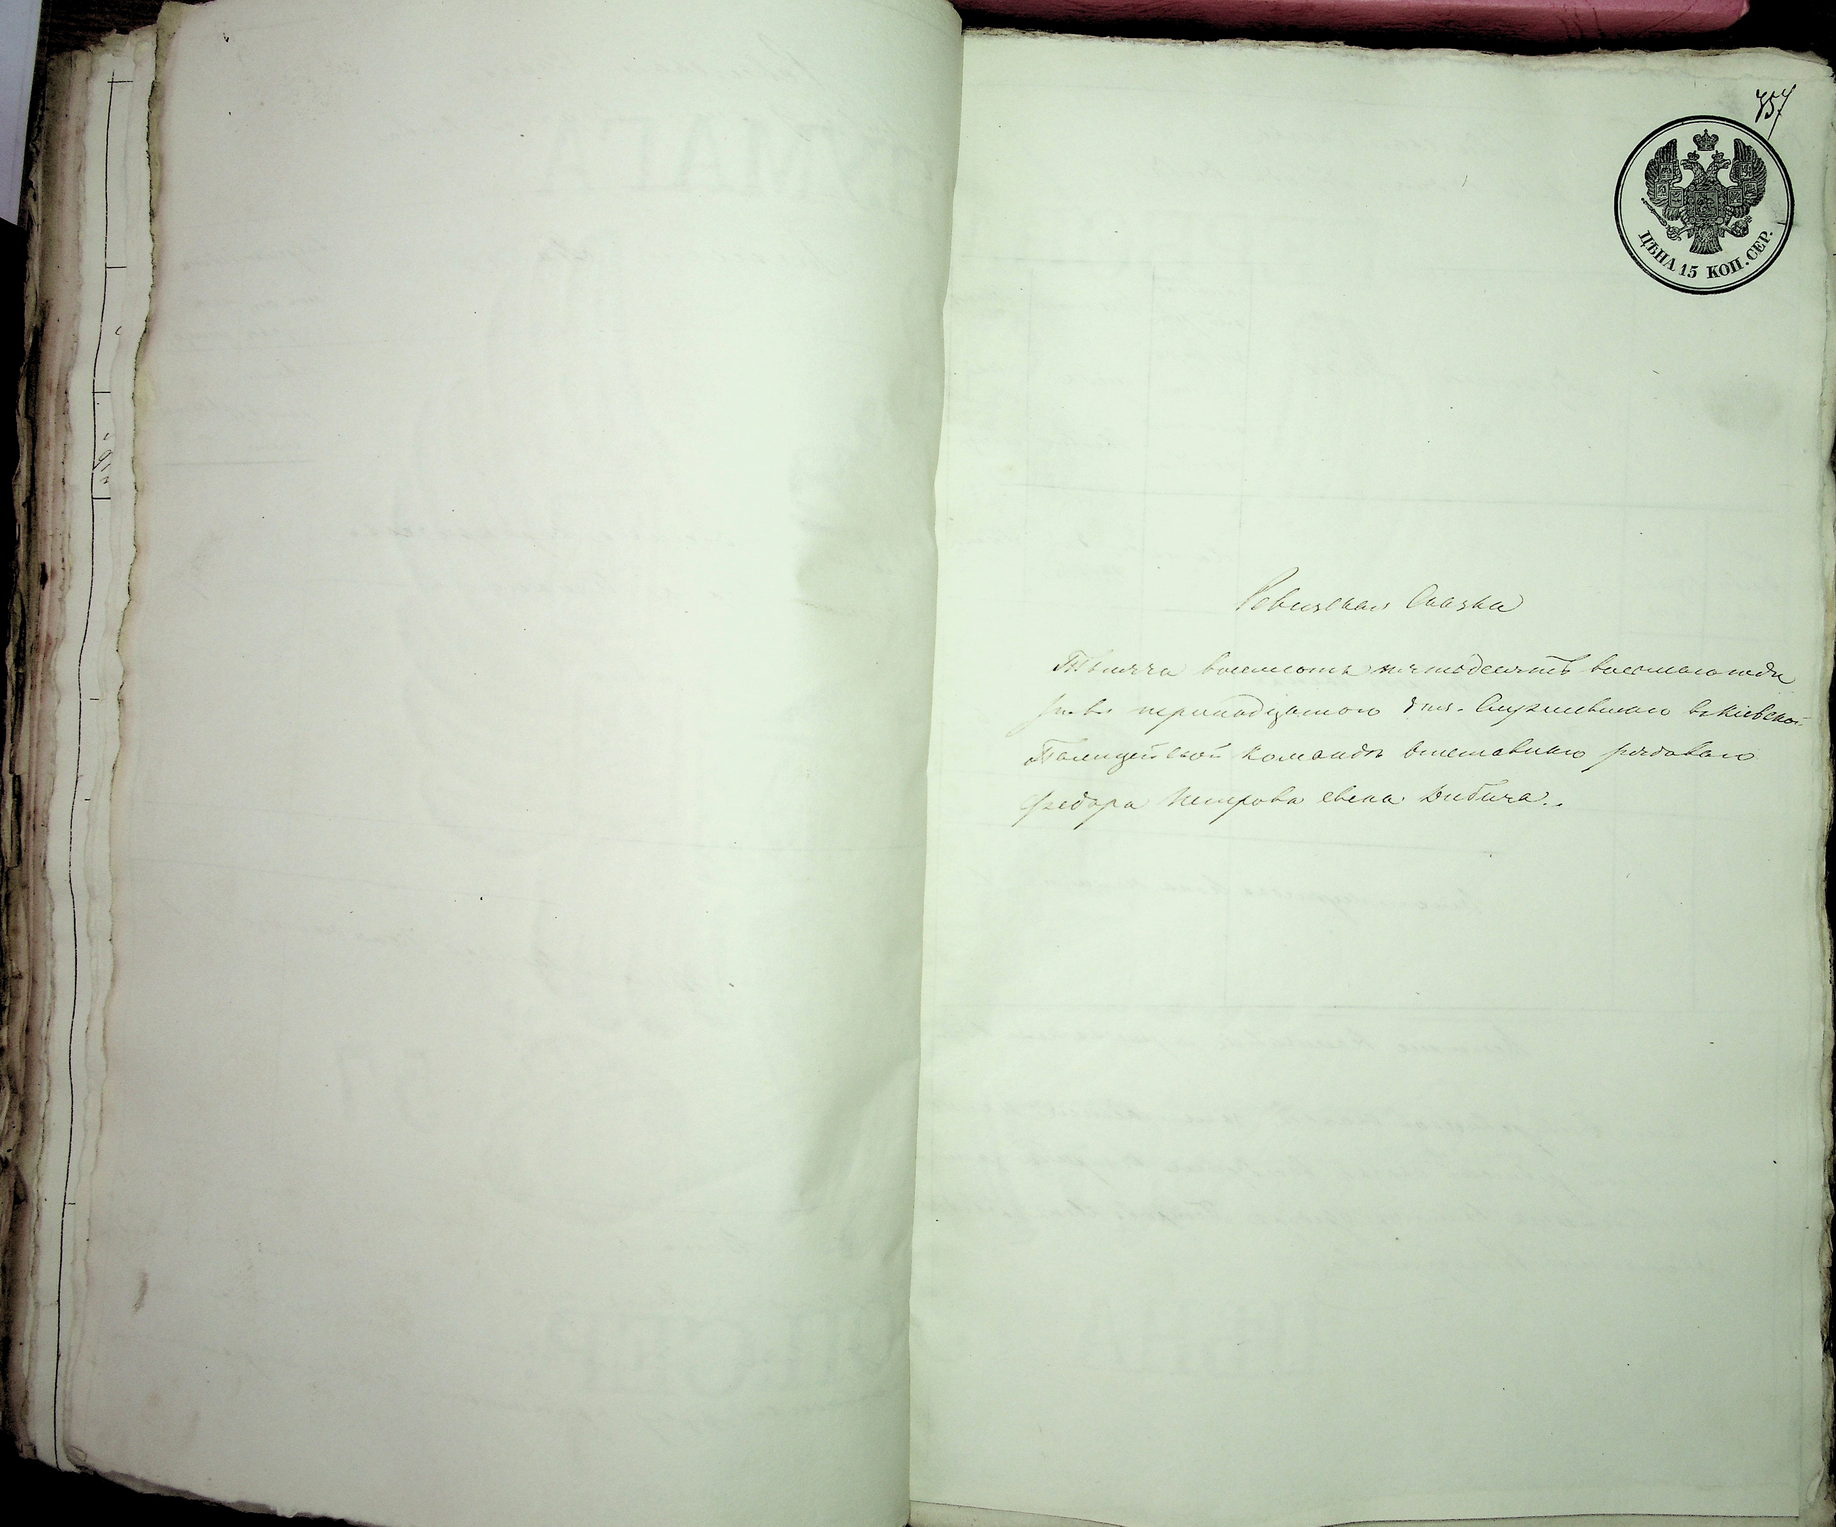 757
ЦѢНА 15 КОП. СЕР.
Ревизская Сказка
Тысяча восемсотъ пятьдесятъ восьмаго года
тринадцатаго дня. Служившаго въ Кіевской
Полицейской командѣ отставнаго рядоваго
Федора Петрова сына Дибича.